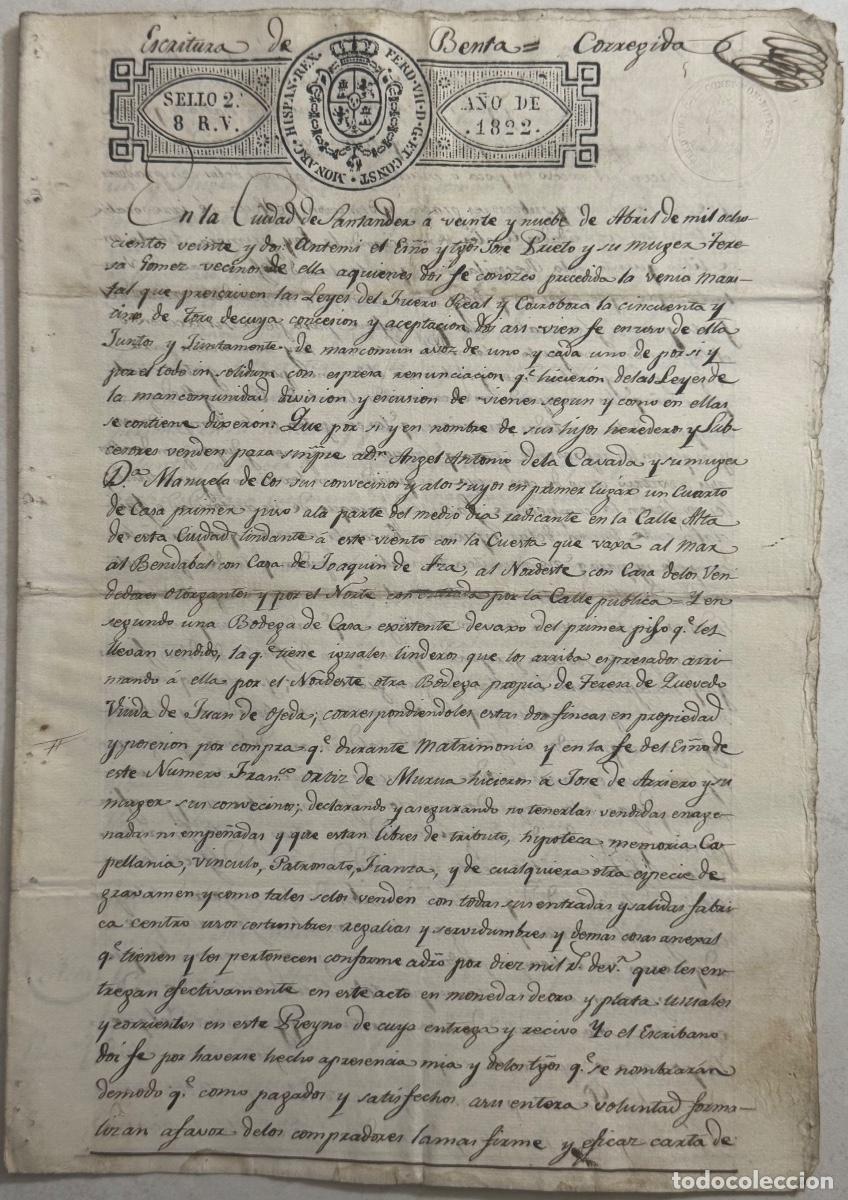 Escritura de Benta = Corregida
SELLO 2.º
8 R. V.
FERD. VII. D. G. ET CONST. MONARC. HISPAN. REX.
AÑO DE
.1822.
En la Ciudad de Santander á veinte y nuebe de Abril de mil ocho-
cientos veinte y dos: Antemi el Esño y tgos Jose Prieto y su muger Tere-
sa Gomez vecinos de ella aquienes doi fe conozco precedida la venia mari-
tal que prescriven las Leyes del Fuero Real y Corrobora la cincuenta y
cinco, de toro decuya concesion y aceptacion doi asi vien fe en uso de ella
Juntos y Juntamente de mancomun avoz de uno y cada uno de por si y
por el todo in solidum con espresa renunciacion q.e hicierón delas Leyes de
la mancomunidad division y escusion de vienes segun y como en ellas
se contiene dixerón: Que por si y en nombre de sus hijos herederos y Sub-
cesores venden para simpre adn. Angel Antonio dela Cavada y su muger
D.a Manuela de Cos sus convecinos y alos suyos en primer lugár un Cuarto
de Casa primer piso ala parte del medio dia radicante en la Calle Alta
de esta Ciudad lindante á este viento con la Cuesta que vaxa al Mar
al Bendabal con Casa de Joaquin de Aza al Nordeste con Casa delos Ven-
dedores Otorgantes y por el Norte con entrada por la Calle publica = Y en
segundo una Bodega de Casa existente devaxo del primer piso q.e les
llevan vendido, la q.e tiene iguales linderos que los arriba espresados arri-
mando á ella por el Nordeste otra Bodega propia de Teresa de Quevedo
Viuda de Juan de Ojeda; correspondiendoles estas dos fincas en propiedad
y posesion por compra q.e durante Matrimonio y en la fe del Esño de
este Numero Fran.co Ortiz de Murua hicieron á Jose de Arriero y su
muger sus convecinos; declarando y asegurando no tenerlas vendidas enage-
nadas ni empeñadas y que estan libres de tributo, hipoteca memoria Ca-
pellania, vinculo, Patronato, Fianza, y de cualquiera otra especie de
gravamen y como tales selos venden con todas sus entradas y salidas fabri-
ca centro usos costumbres regalias y servidumbres y demas cosas anexas
q.e tienen y les pertenecen conforme adro por diez mil r.s de v.n que les en-
tregan efectivamente en este acto en monedas de oro y plata usuales
y corrientes en este Reyno de cuya entrega y recivo Yo el Escribano
doi fe por haverse hecho apresencia mia y delos tgos q.e se nombrarán
demodo q.e como pagados y satisfechos asu entera voluntad forma-
lizan afavor delos compradores la mas firme y eficaz carta de
todocoleccion